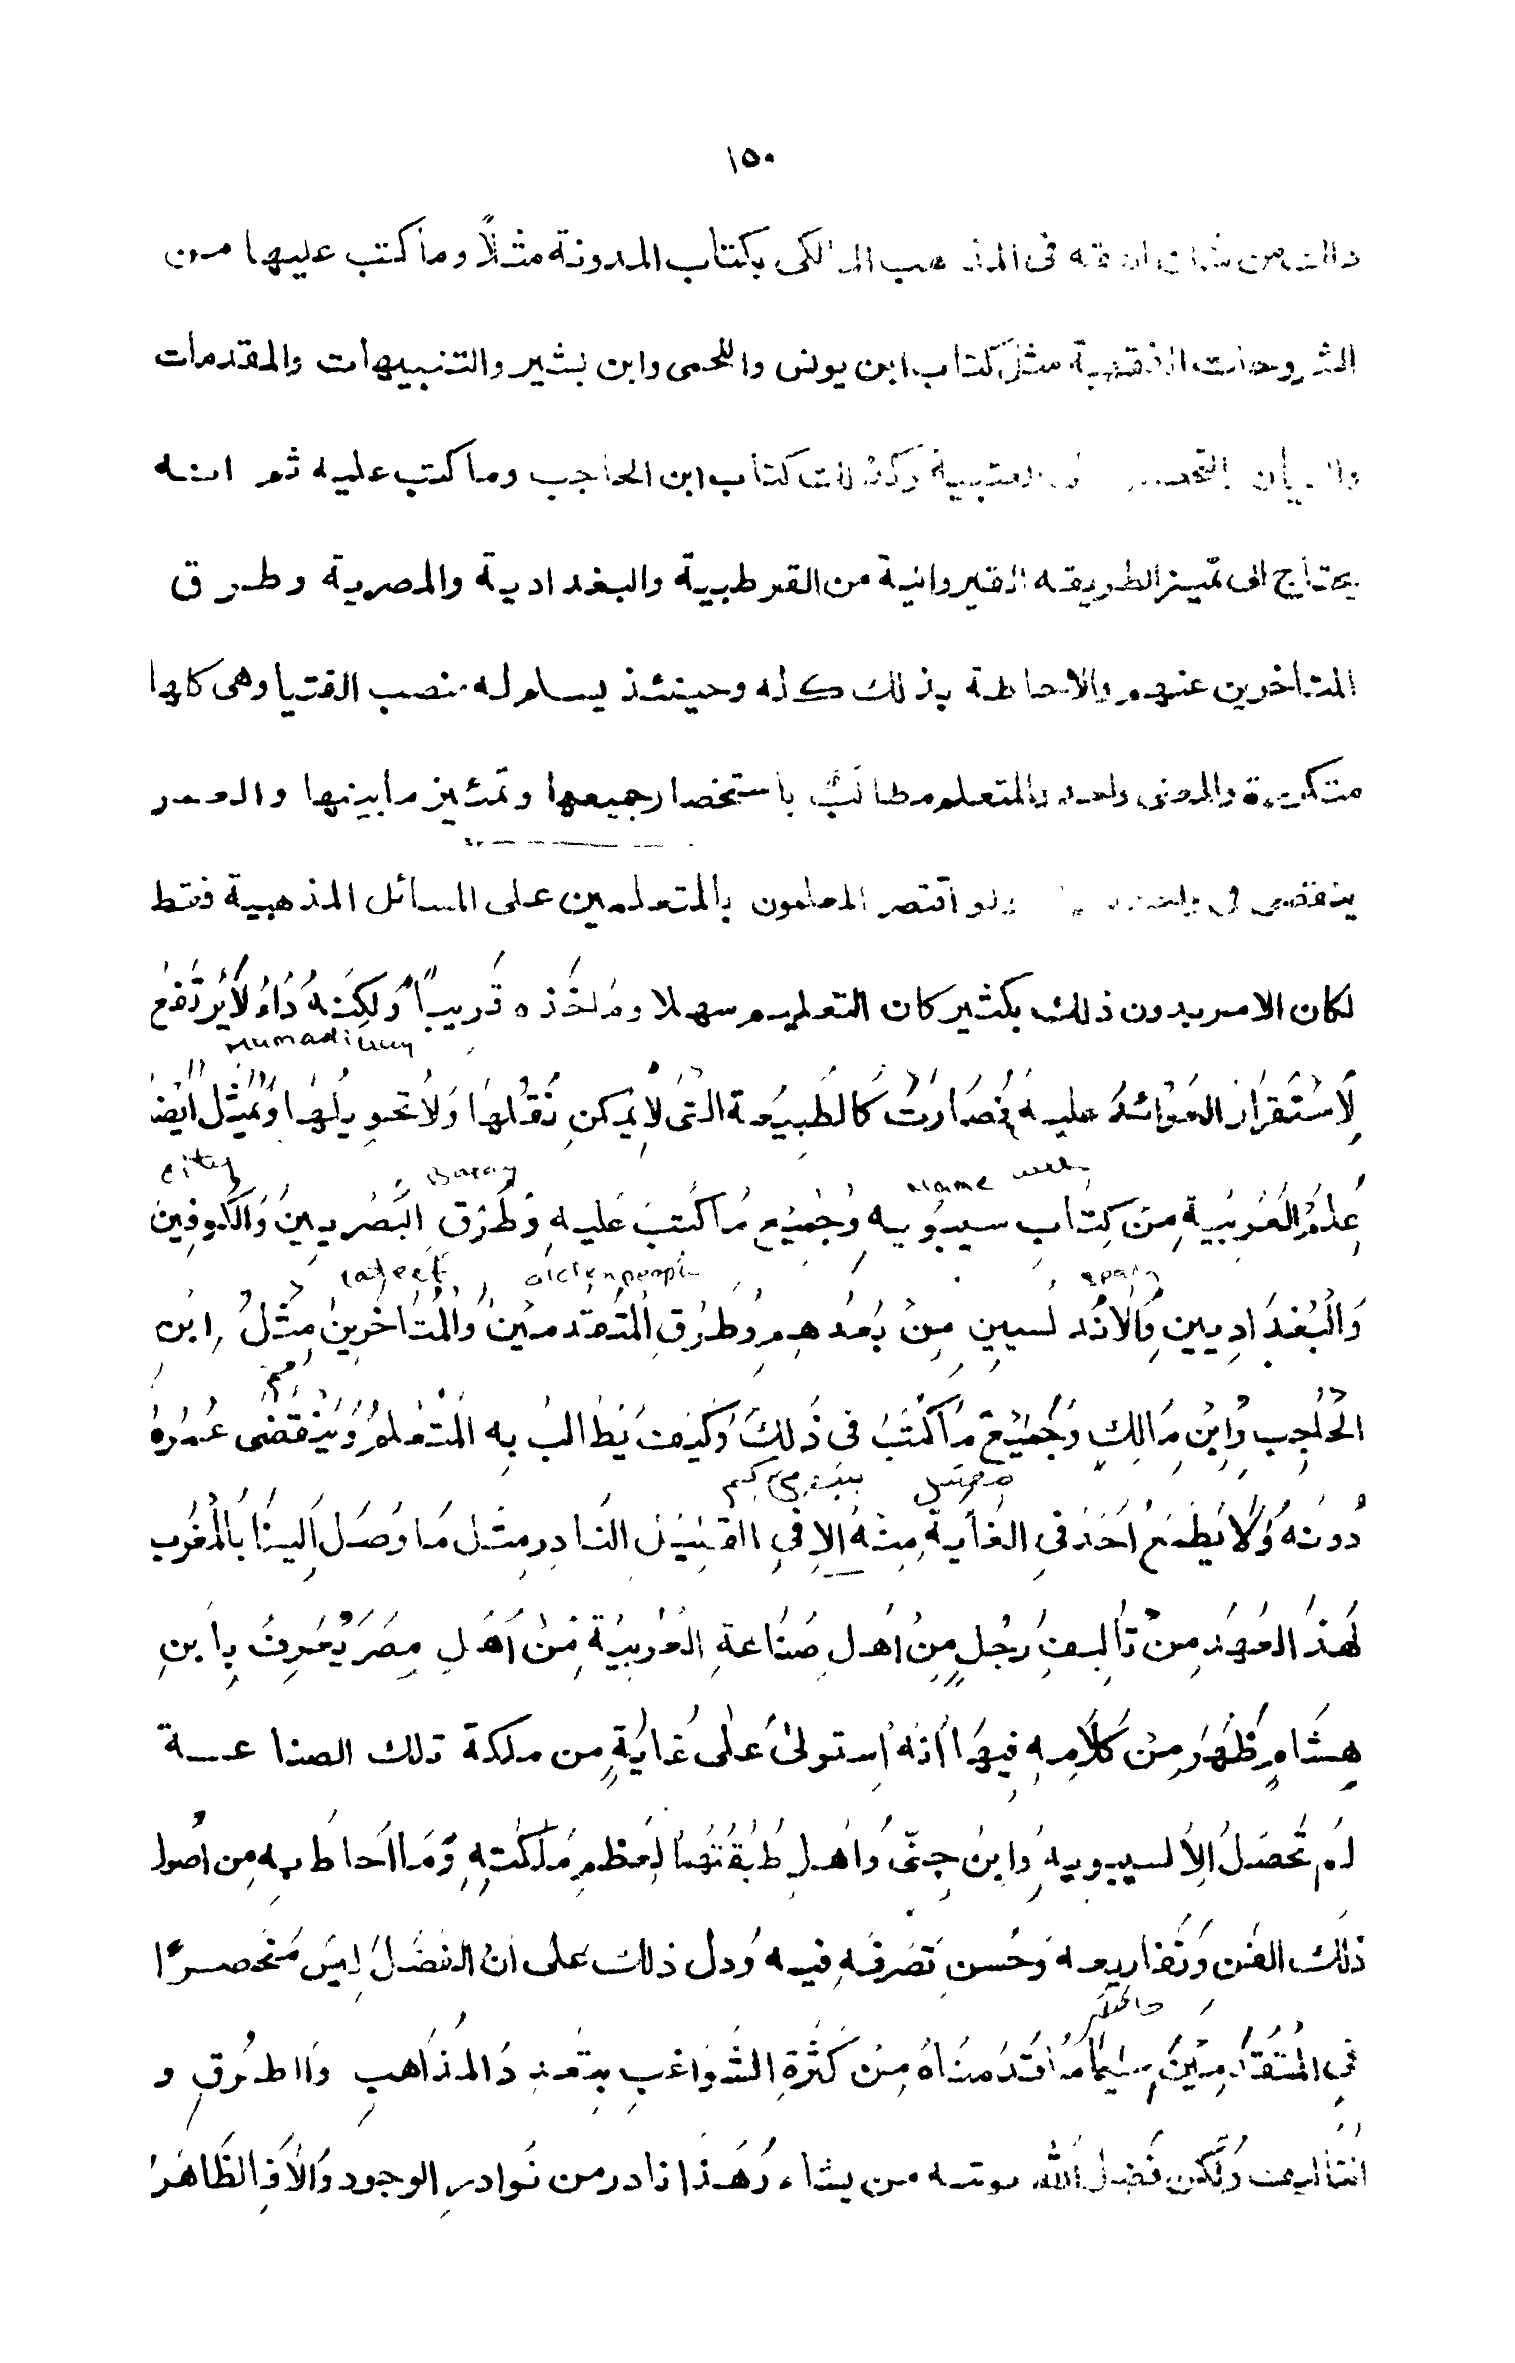 ١٥٠
ذالك من شان الفقه فى المذهب المالكى بكتاب المدونة مثلاً وما كتب عليها من
الشروحات الفقهية مثل كتاب ابن يونس واللخمى وابن بشير والتنبيهات والمقدمات
والبيان التحصيل العتبية وكذلك كتاب ابن الحاجب وما كتب عليه ثم انه
يحتاج الى تميز الطريقه القيروانية من القرطبية والبغدادية والمصرية وطرق
المتاخرين عنهم والاحاطة بذلك كله وحينئذ يسلم له منصب الفتيا وهى كلها
متكررة والمعنى واحد والمتعلم مطالبٌ باستحضار جميعها وتمئيز ما بينها والعمر
ينقضى فى واحد ولو اقتصر المعلمون بالمتعلمين على المسائل المذهبية فقط
لكان الامر بدون ذلك بكثير كان التعليم سهلا ومٰاخَذه قَريباً وَلكِنَهُ دَاءُ لَايُرتَفعُ
لِاسْتَقرَارْ العَوَائدُ عليهِ فصَارَتْ كالطَبِيَعة التَى لَا يُمكنِ نَقْلهَا وَلاَ تحويلُهَا وَيُمَثِلُ ايْضا
city Basray Name
عِلمُ العَرَبيَةِ مِنْ كِتَابِ سيبَويهِ وَجْمَيْعِ مَا كُتبَ عَليهِ وَطُرَقِ البَصْريينَ وَالكوفِينَ
olden people spain
وَالبُغدَادِيين وَالاَنْدلسيينِ مِنْ بَعْدهِم وَطرُقِ المَتقَدمَيْنَ وَالمُتَاخَرِينَ مِثْلُ ابنِ
الحْاجِبِ وَابْنِ مَالِكٍ وَجَميْعَ مَا كُتَبُ فى ذَلكَ وَكَيفَ يَطَالبُ بِه المتَعْلمُ وَيَنْقَضَى عُمرهُ
دُونهُ وَلَا يَطْمَعُ احَدْ فىِ الغَايةَ مِنْهُ الاِ فىِ القَليَلِ النَادرِ مِثْل مَا وَصَل اِلينَا بَالمَغْربِ
لَهذَ العهَد مِنْ تَأليفِ رَجُلٍ مِنْ اهْل صَناعةِ العَرَبيَةِ مِنْ اهَلِ مِصَرَ يُعَرفُ بِابنِ
هِشَامٍ ظَهَرَ مِنْ كَلَامِهِ فيهَا اَنهُ اِستولىَ عَلى غَايَةٍ مِن ملكة تلك الصناعة
لَم تَحصَلْ اِلاَ لسيبويهِ وَابنْ جِنّى وَاهْلِ طَبَقَتهَمَا لِعَظمِ مَلَكَتِهِ وَمَا احَاطَ بِهِ مِن اصُول
ذلَكَ الفَنِ وَتَفاريعهِ وَحُسنِ تَصَرفِهِ فيه وَدل ذلك عَلى اَنْ الفَضْلَ لِيسَ مَنْحصرًا
فىِ المُتَقَدِمِيْنَ سِيمَا مَا قَدَمَناهُ مِنْ كَثْرَةِ الشَوَاغِبِ بتَعدد المَذَاهبِ وَالطُرقِ و
التَاليف وَلكِن فَضل اللّٰه يوتيه من يشاء وَهَذا نادر من نَوادرِ الوجود وَالاَ فالظَاهَرُ